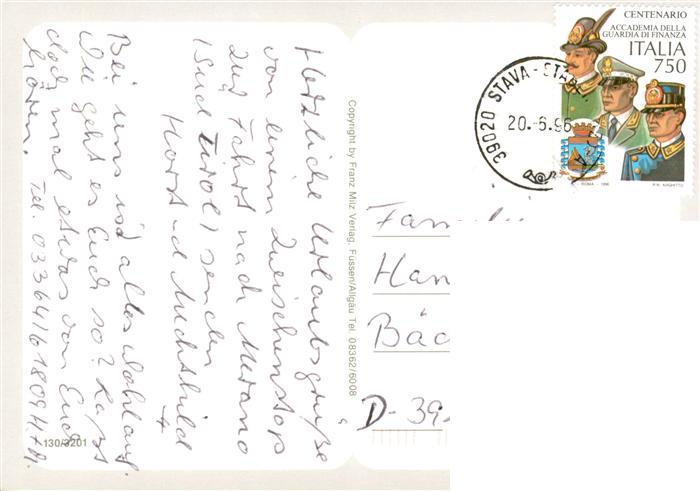 Herzliche Urlaubsgrüße
von einem Zwischenstop
auf Fahrt nach Merano
(Süd Tirol) senden
Horst und Mechthild
Bei uns ist alles wohlauf.
Wie geht es Euch so? Laßt
doch mal etwas von Euch
hören. Tel. 03364/61809 H+M
130/3201
Copyright by Franz Milz Verlag, Füssen/Allgäu Tel. 08362/6008
CENTENARIO
ACCADEMIA DELLA
GUARDIA DI FINANZA
ITALIA
750
ROMA - 1996
39020 STAVA-STA
20.-6.96
Familie
Han
Bäc
D-39